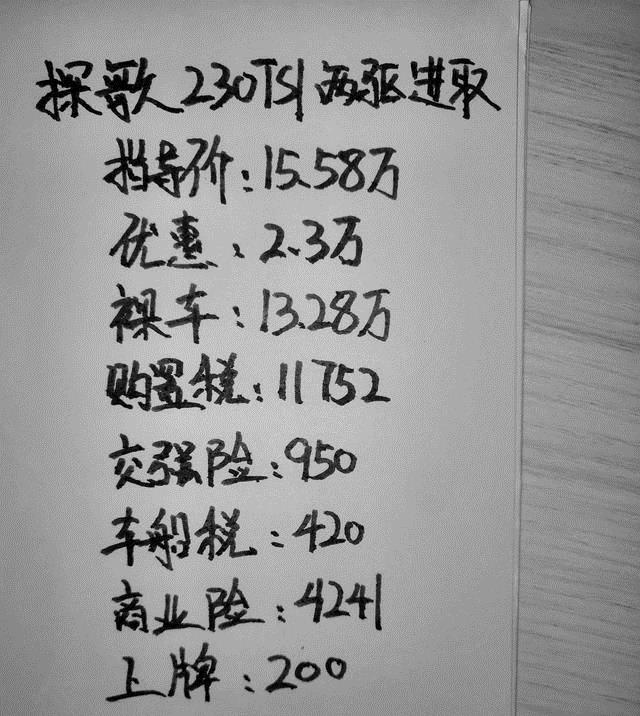 探歌 230TSI 两驱进取
指导价：15.58万
优惠：2.3万
裸车：13.28万
购置税：11752
交强险：950
车船税：420
商业险：4241
上牌：200